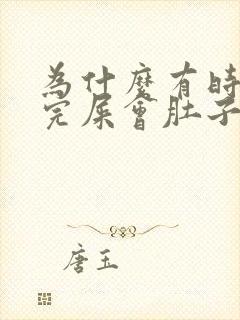 為什麼有時
完屎會肚子
唐玉